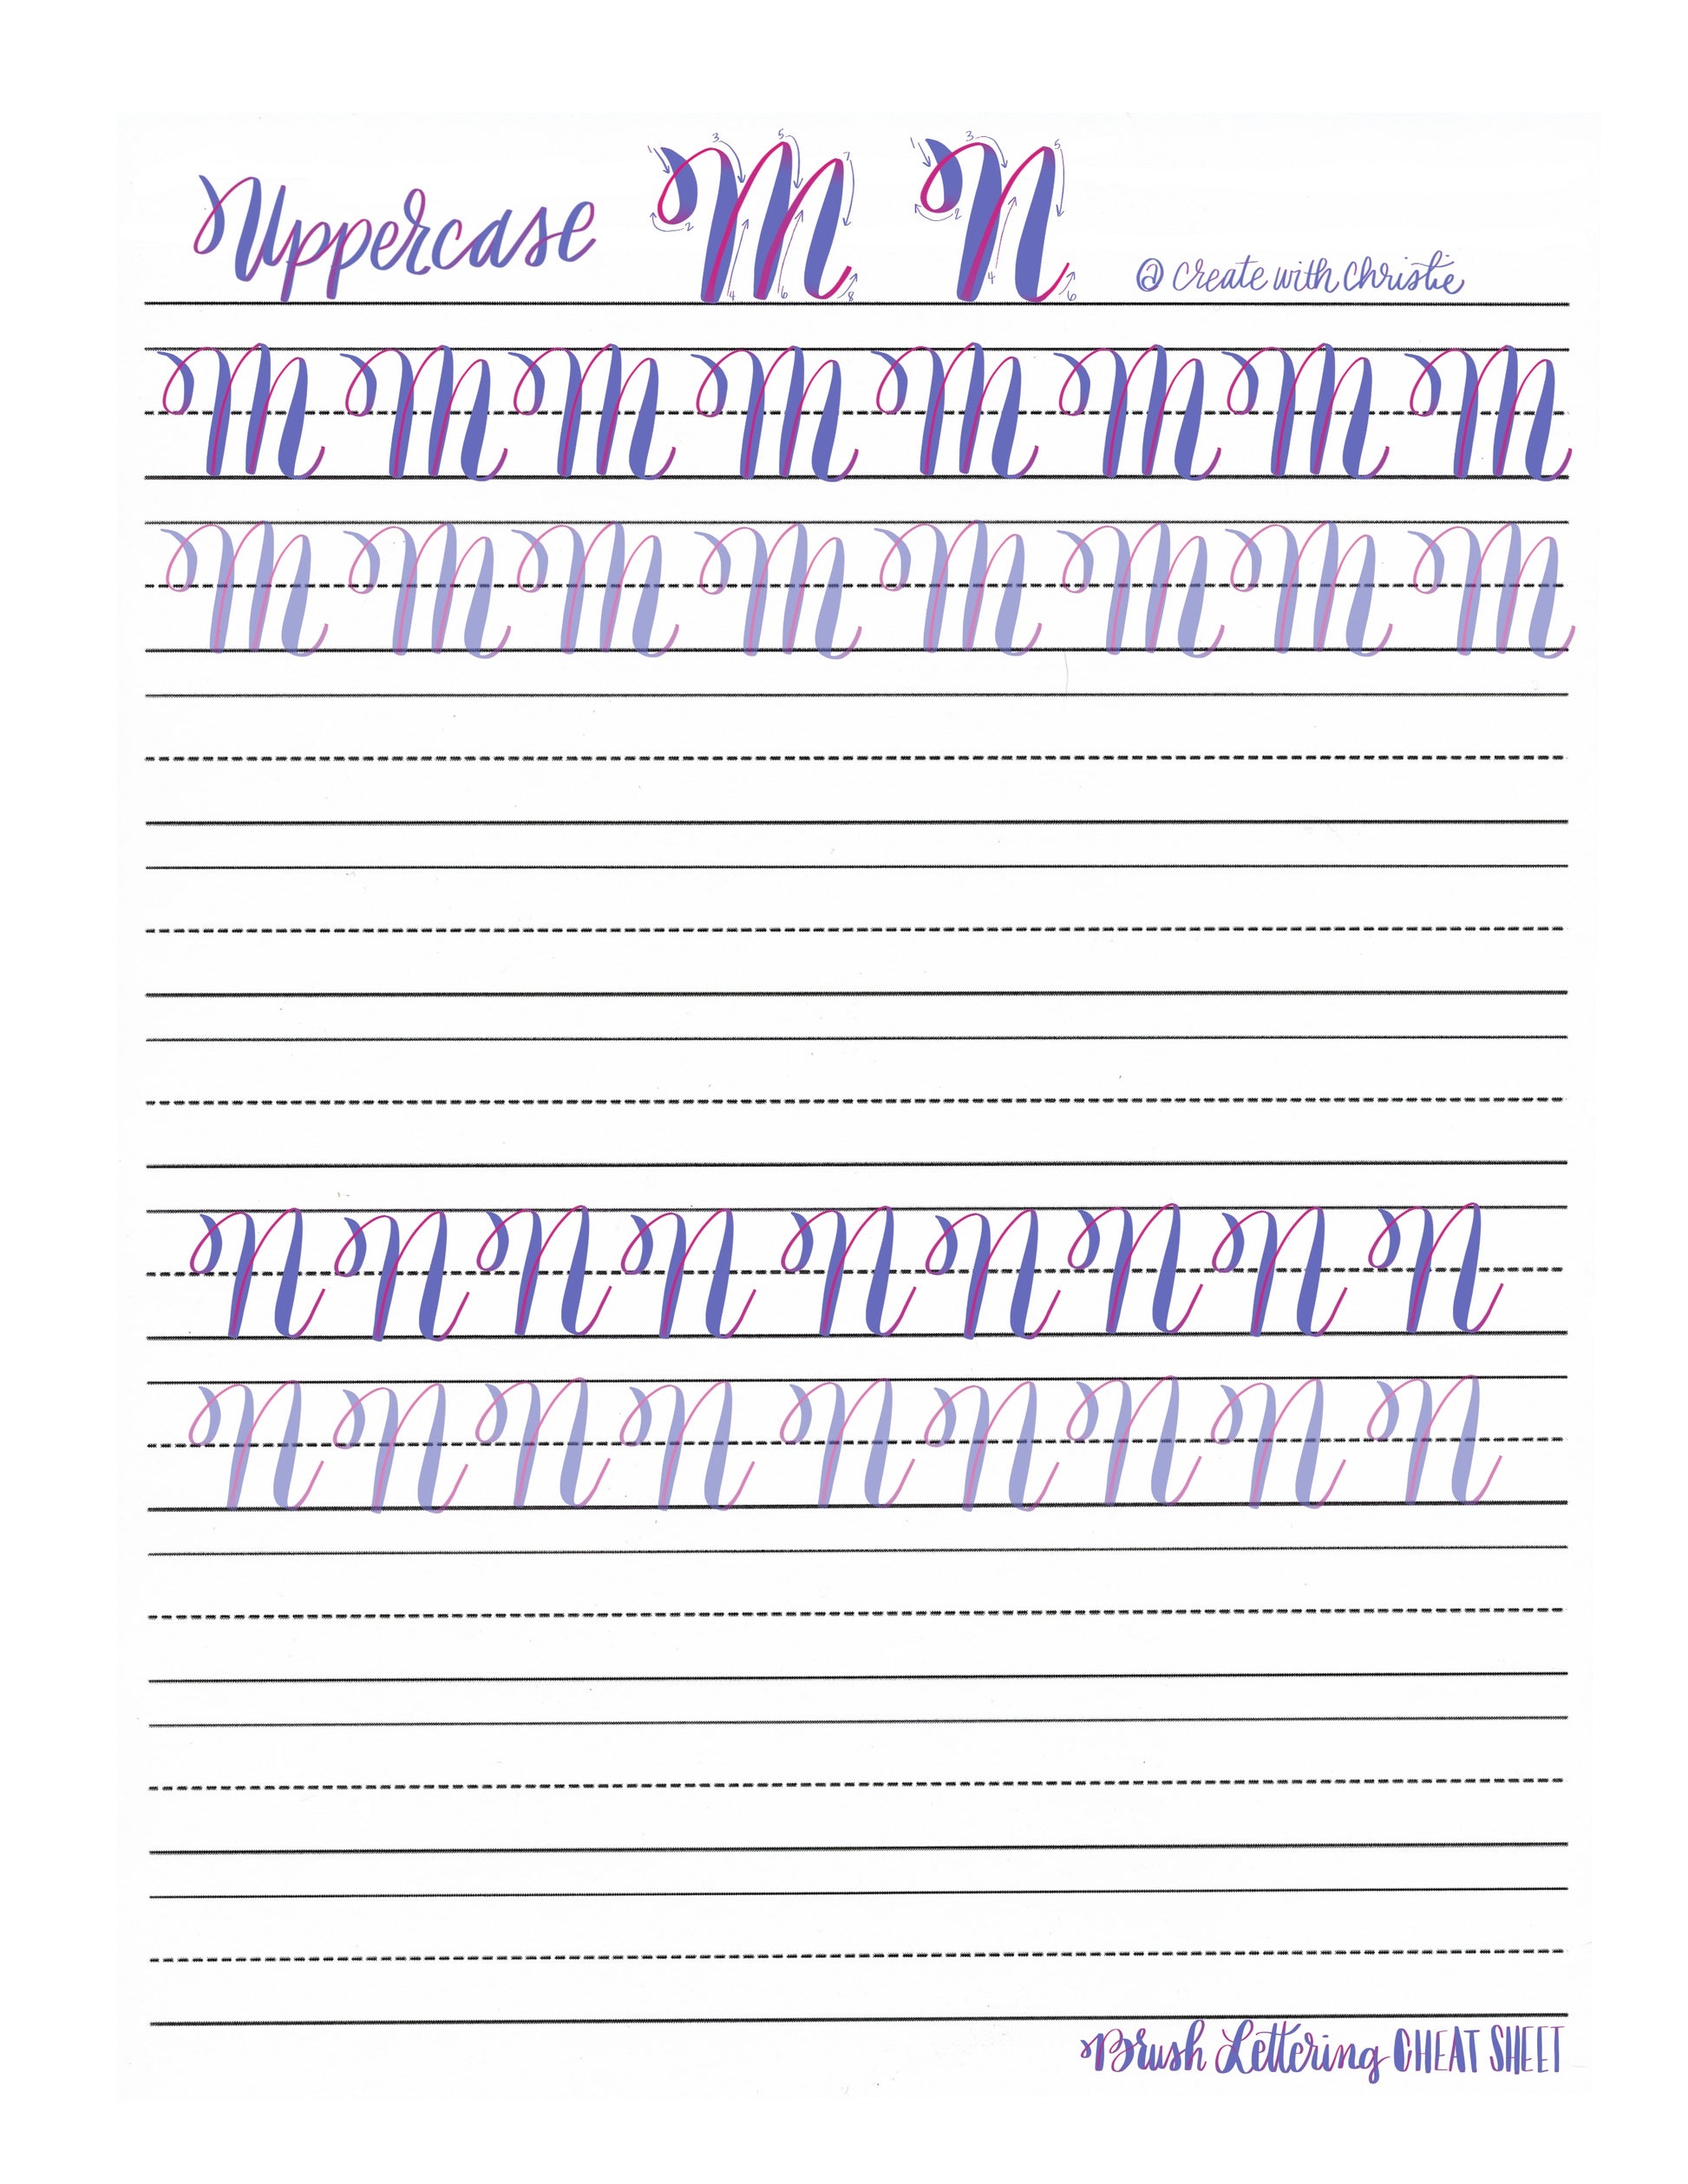 Uppercase M N @createwithchristie
1 2 3 4 5 6 7 8 1 2 3 4 5 6
M M M M M M M M
M M M M M M M M
N N N N N N N N N
N N N N N N N N N
Brush Lettering CHEAT SHEET